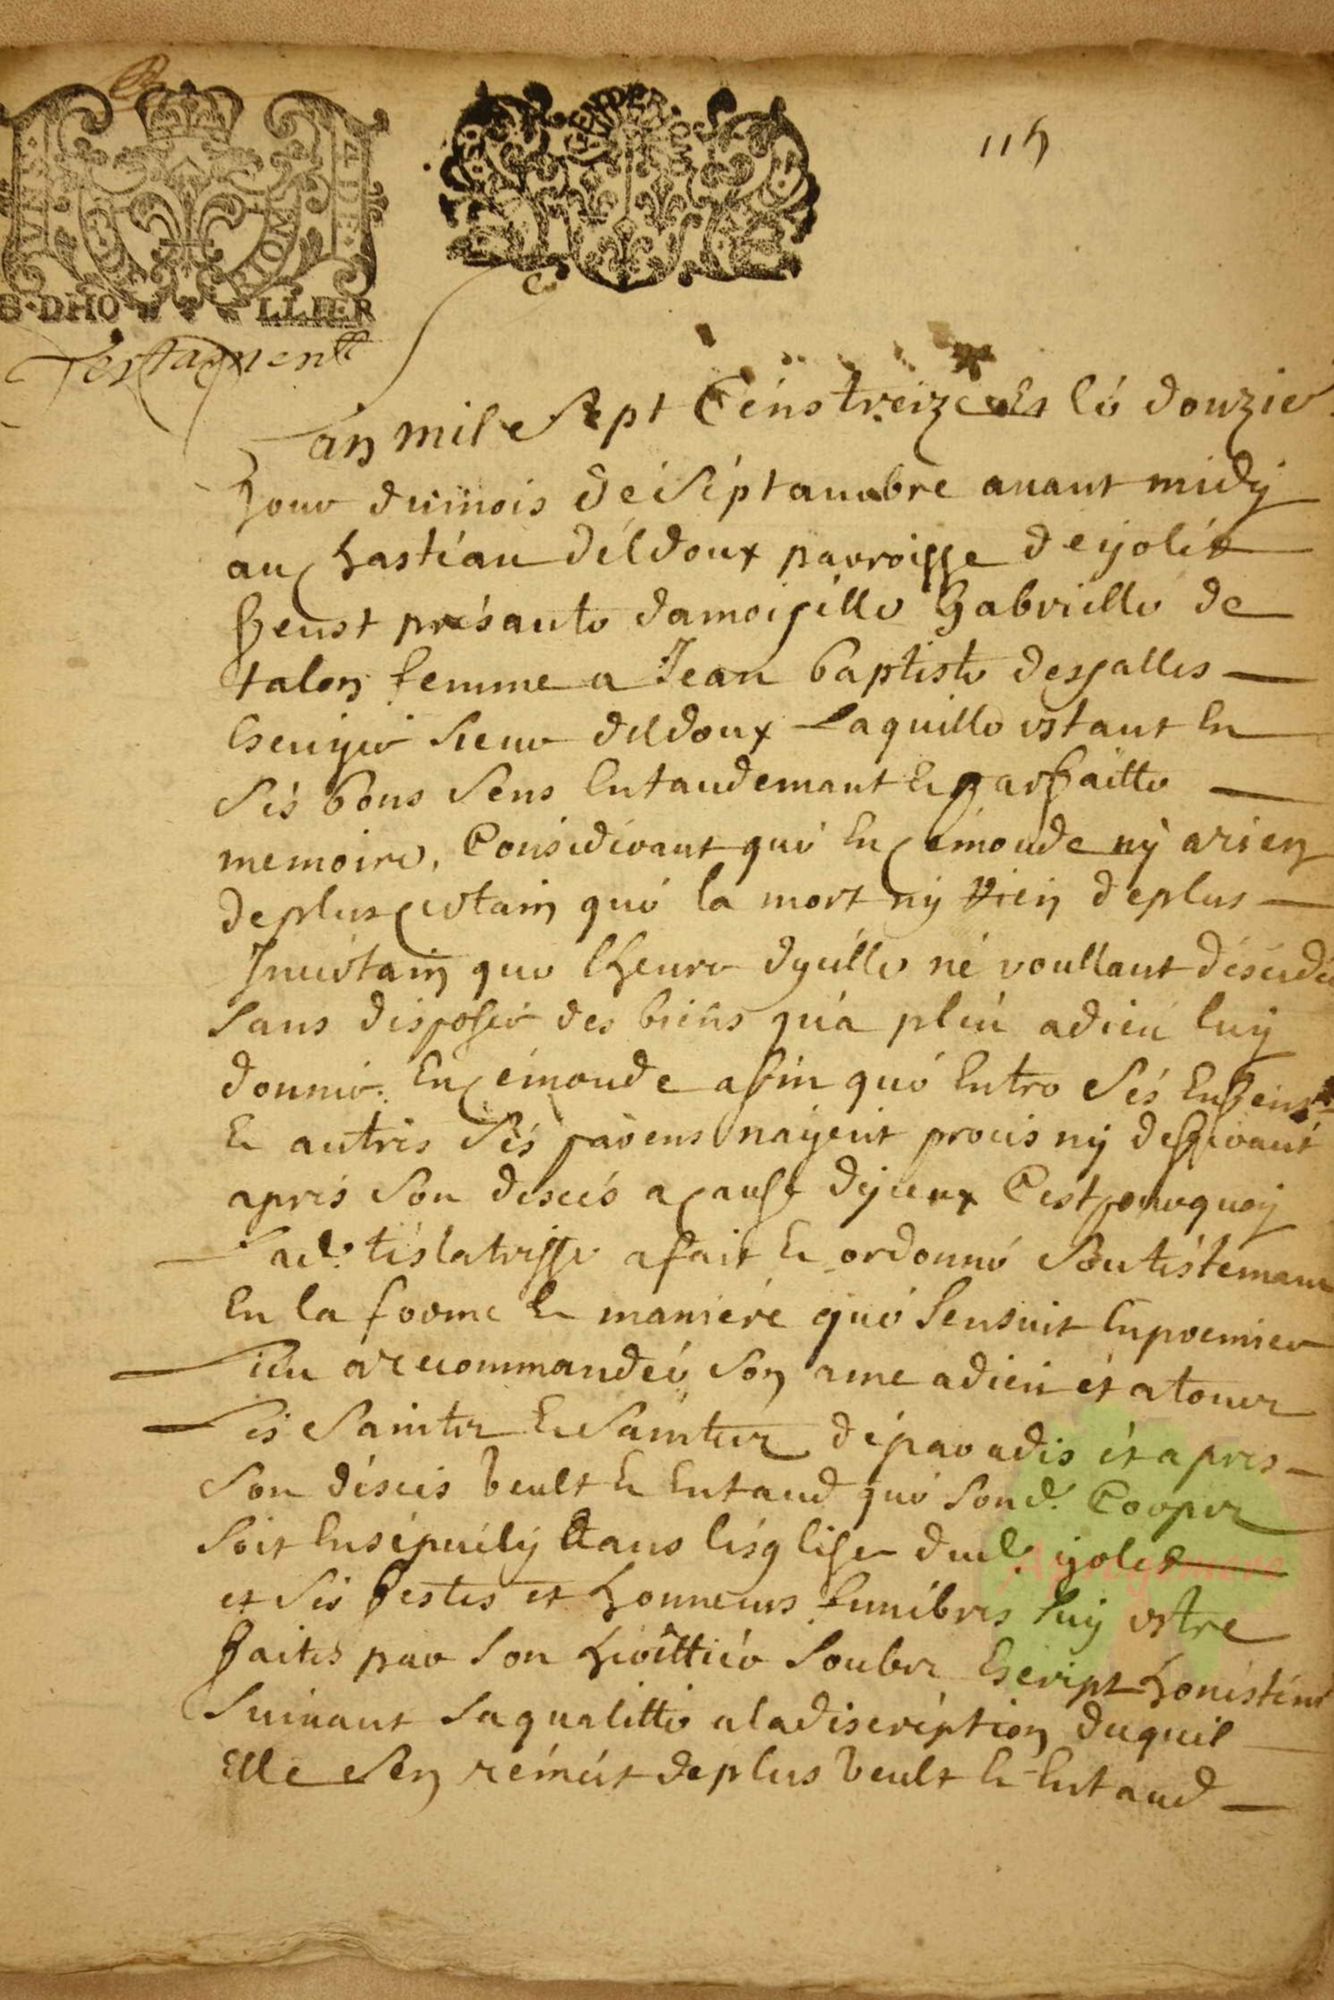 115
VNS
A DE
GEN DE
S · DHO LLIER
Testagment
Lan mil sept Cens treize et le douzie
Jour dumois de septambre auant midy
au chastéau déldoux parroisse deyolét
feust présante damoiselle Gabrielle de
talon femme a Jean baptiste dessalles
Escuyer sieur deldoux Laquelle estant En
ses bons sens Entandemant Et parfaitte
memoire, Considerant que En cémonde ny arien
deplus certain que la mort ny Rien deplus
Incertain que lheure dycelle né voullant déséder
sans disposer des biens qua pleu adieu luy
donner. En cémonde afin que Entre sés Enfens
Et autres sés parens nayent procés ny desferant
aprés son descés acause dyceux Cest pourquoy
Lad. testatrisse afait Et ordonné son téstemant
En la forme Et maniére que sensuit Enpremier
lieu arecommandée son ame adieu ét atouts
lés saints Et saintes déparadis ét apres
son déscés Veult Et Entand que sond. Corps
soit Ensépuély dans lésglise dud. yolet
et ses festes et honneurs funébres luy estre
faites par son hérittier soubz Escript honéstemt
suiuant saqualitte aladiscréption duquel
Elle sen rémét deplus Veult Et Entand